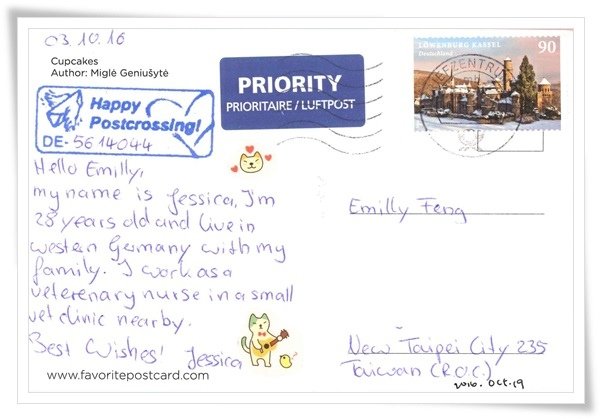 03.10.16
Cupcakes
Author: Miglė Geniušytė
Happy
Postcrossing!
DE-5614044
PRIORITY
PRIORITAIRE / LUFTPOST
LÖWENBURG KASSEL
Deutschland
90
BRIEFZENTRUM
Hello Emilly,
my name is Jessica, I'm
28 years old and live in
western Germany with my
family. I work as a
veterenary nurse in a small
vet clinic nearby.
Best Wishes! Jessica
www.favoritepostcard.com
Emilly Feng
New Taipei City 235
Taiwan (R.O.C.)
2016. Oct. 19